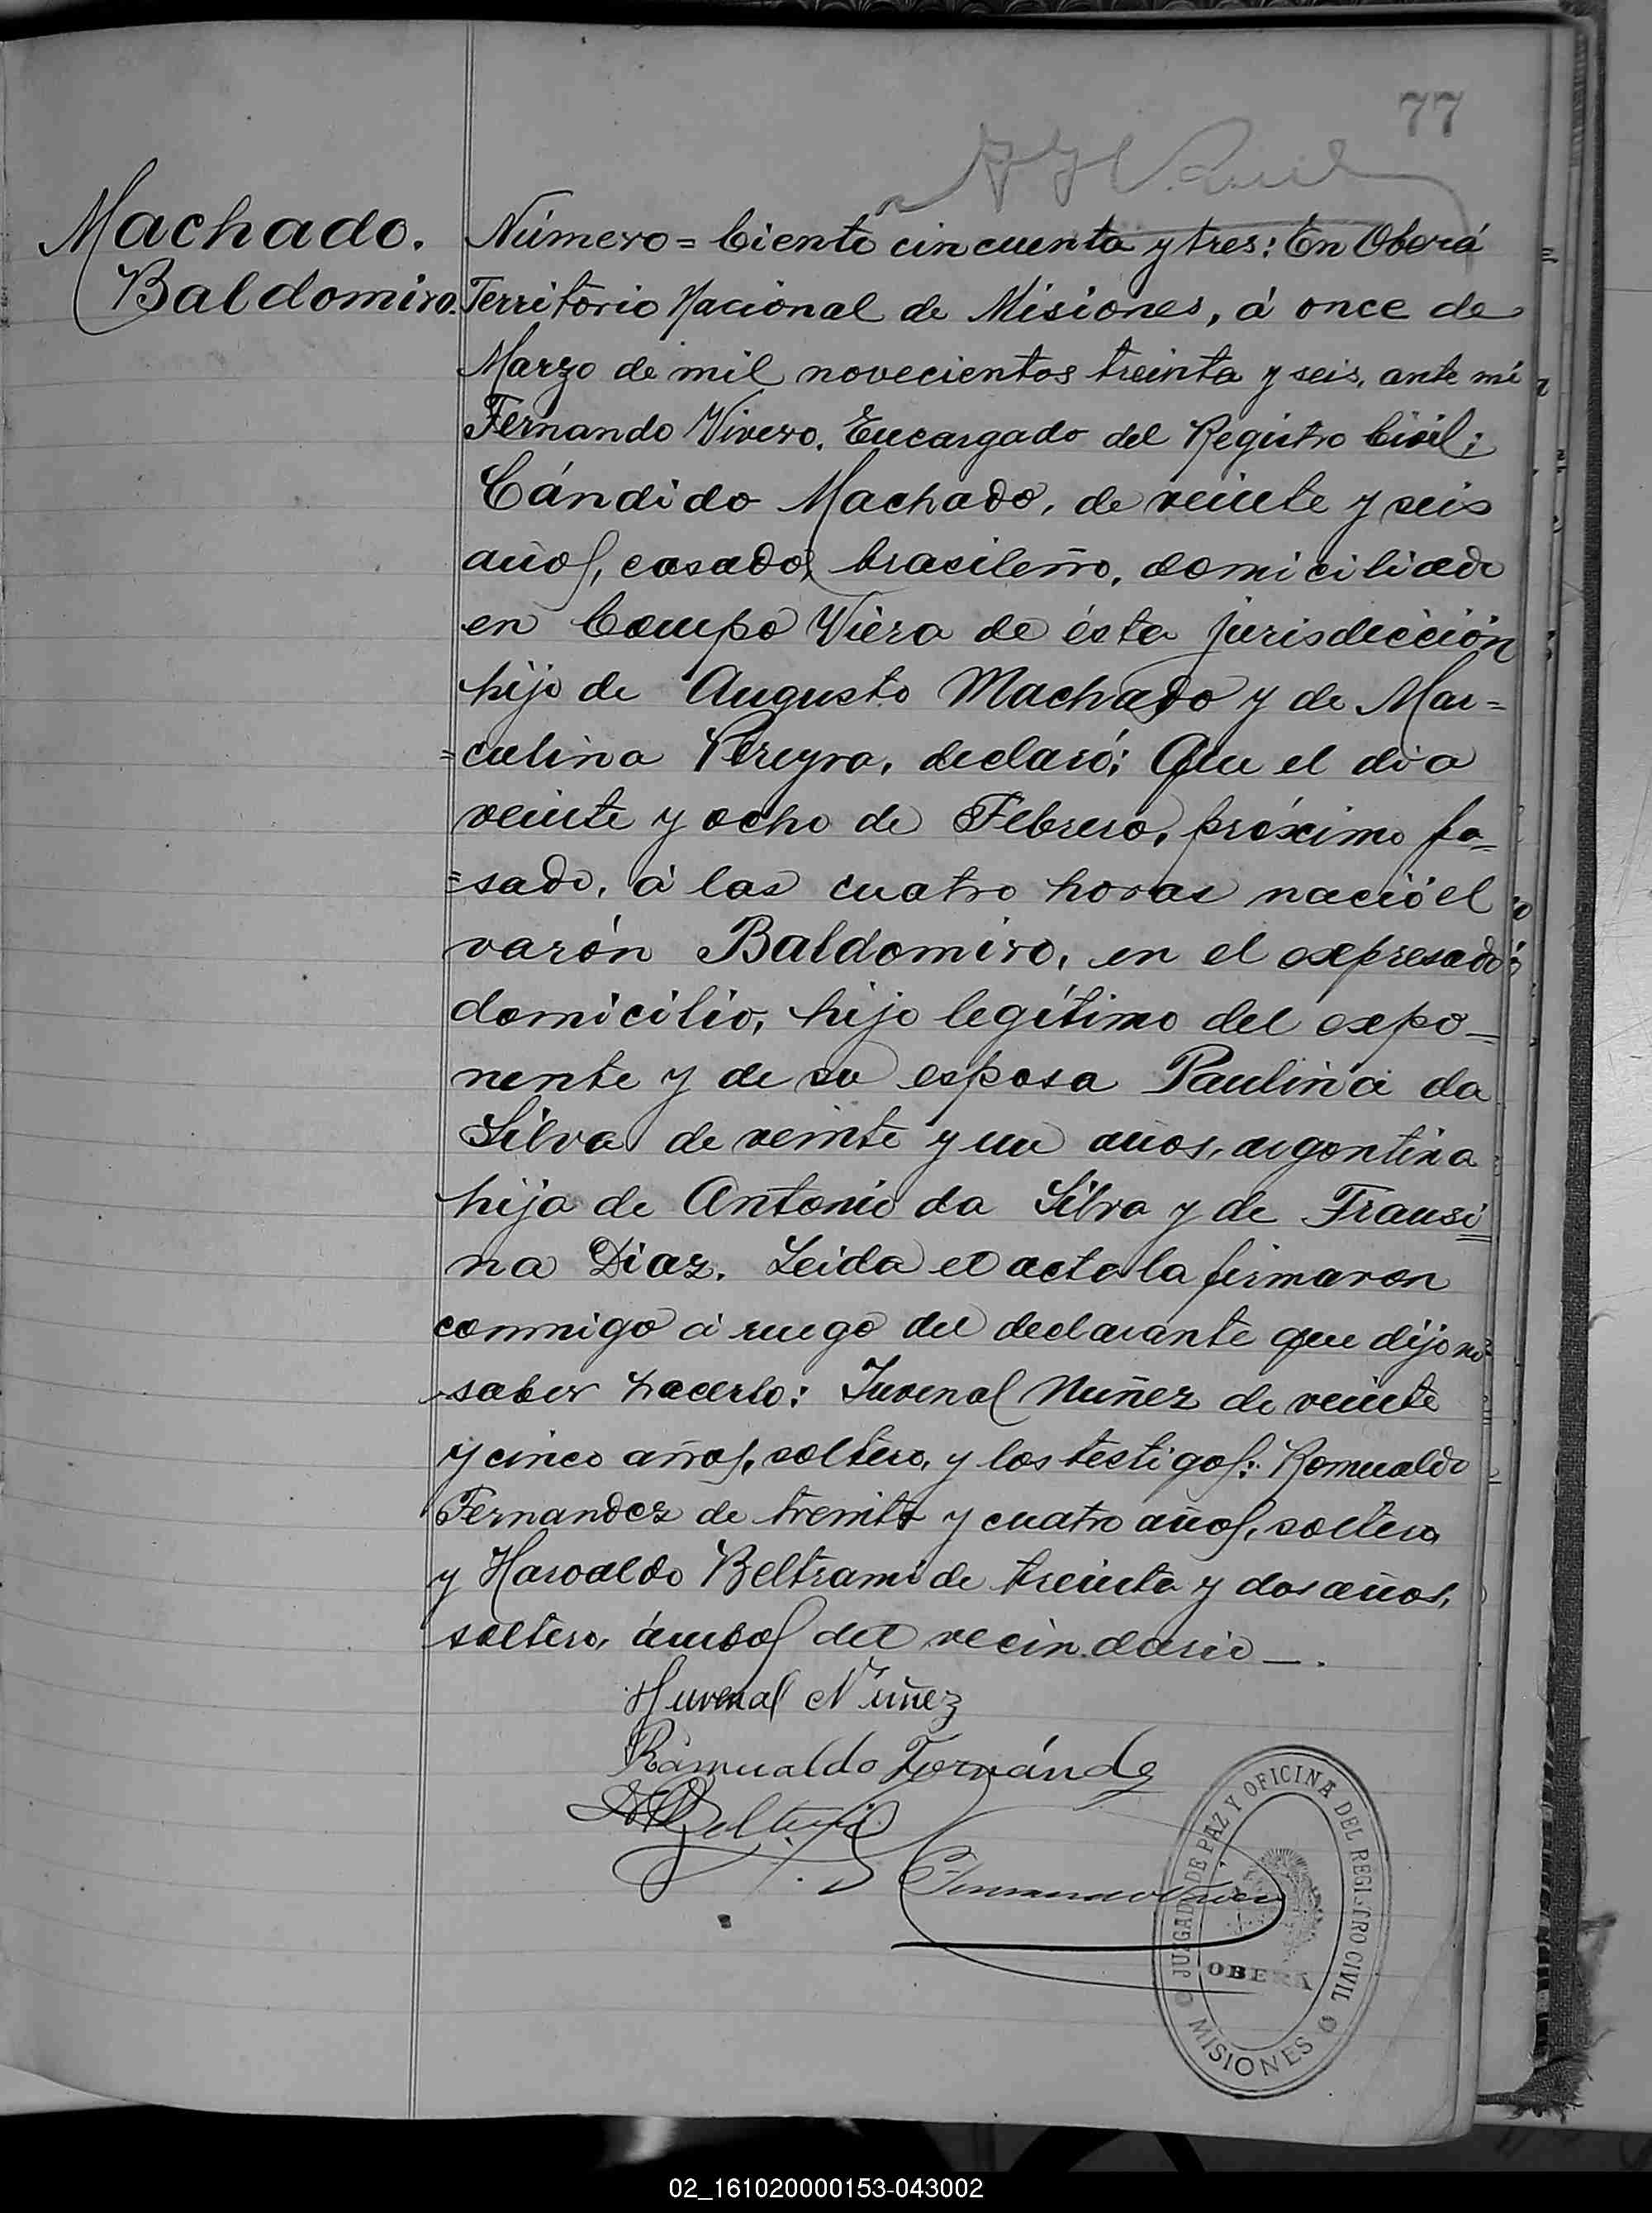 77
Machado.
Baldomiro.
Número = Ciento cincuenta y tres: En Oberá
Territorio Nacional de Misiones, á once de
Marzo de mil novecientos treinta y seis, ante mi
Fernando Vivero. Encargado del Registro Civil;
Cándido Machado, de veinte y seis
años, casado, brasileño, domiciliado
en Campo Viera de ésta jurisdicción
hijo de Augusto Machado y de Mar=
=culina Pereyra, declaró: Que el dia
veinte y ocho de Febrero, próximo pa=
=sado, á las cuatro horas nació el
varón Baldomiro, en el expresado
domicilio, hijo legítimo del expo-
nente y de su esposa Paulina da
Silva de veinte y un años, argentina
hija de Antonio da Silva y de Fransi=
na Diaz. Leida el acta la firmaron
conmigo á ruego del declarante que dijo no
saber hacerlo: Juvenal Nuñez de veinte
y cinco años, soltero, y los testigos: Romualdo
Fernandez de treinta y cuatro años, soltero
y Haroaldo Beltrami de treinta y dos años,
soltero, ámbos del vecindario —.
Huvenal Nuñez
Ramualdo Fernández
Fernando Vivero
JUZGADO DE PAZ Y OFICINA DEL REGISTRO CIVIL
OBERÁ
MISIONES
02_161020000153-043002